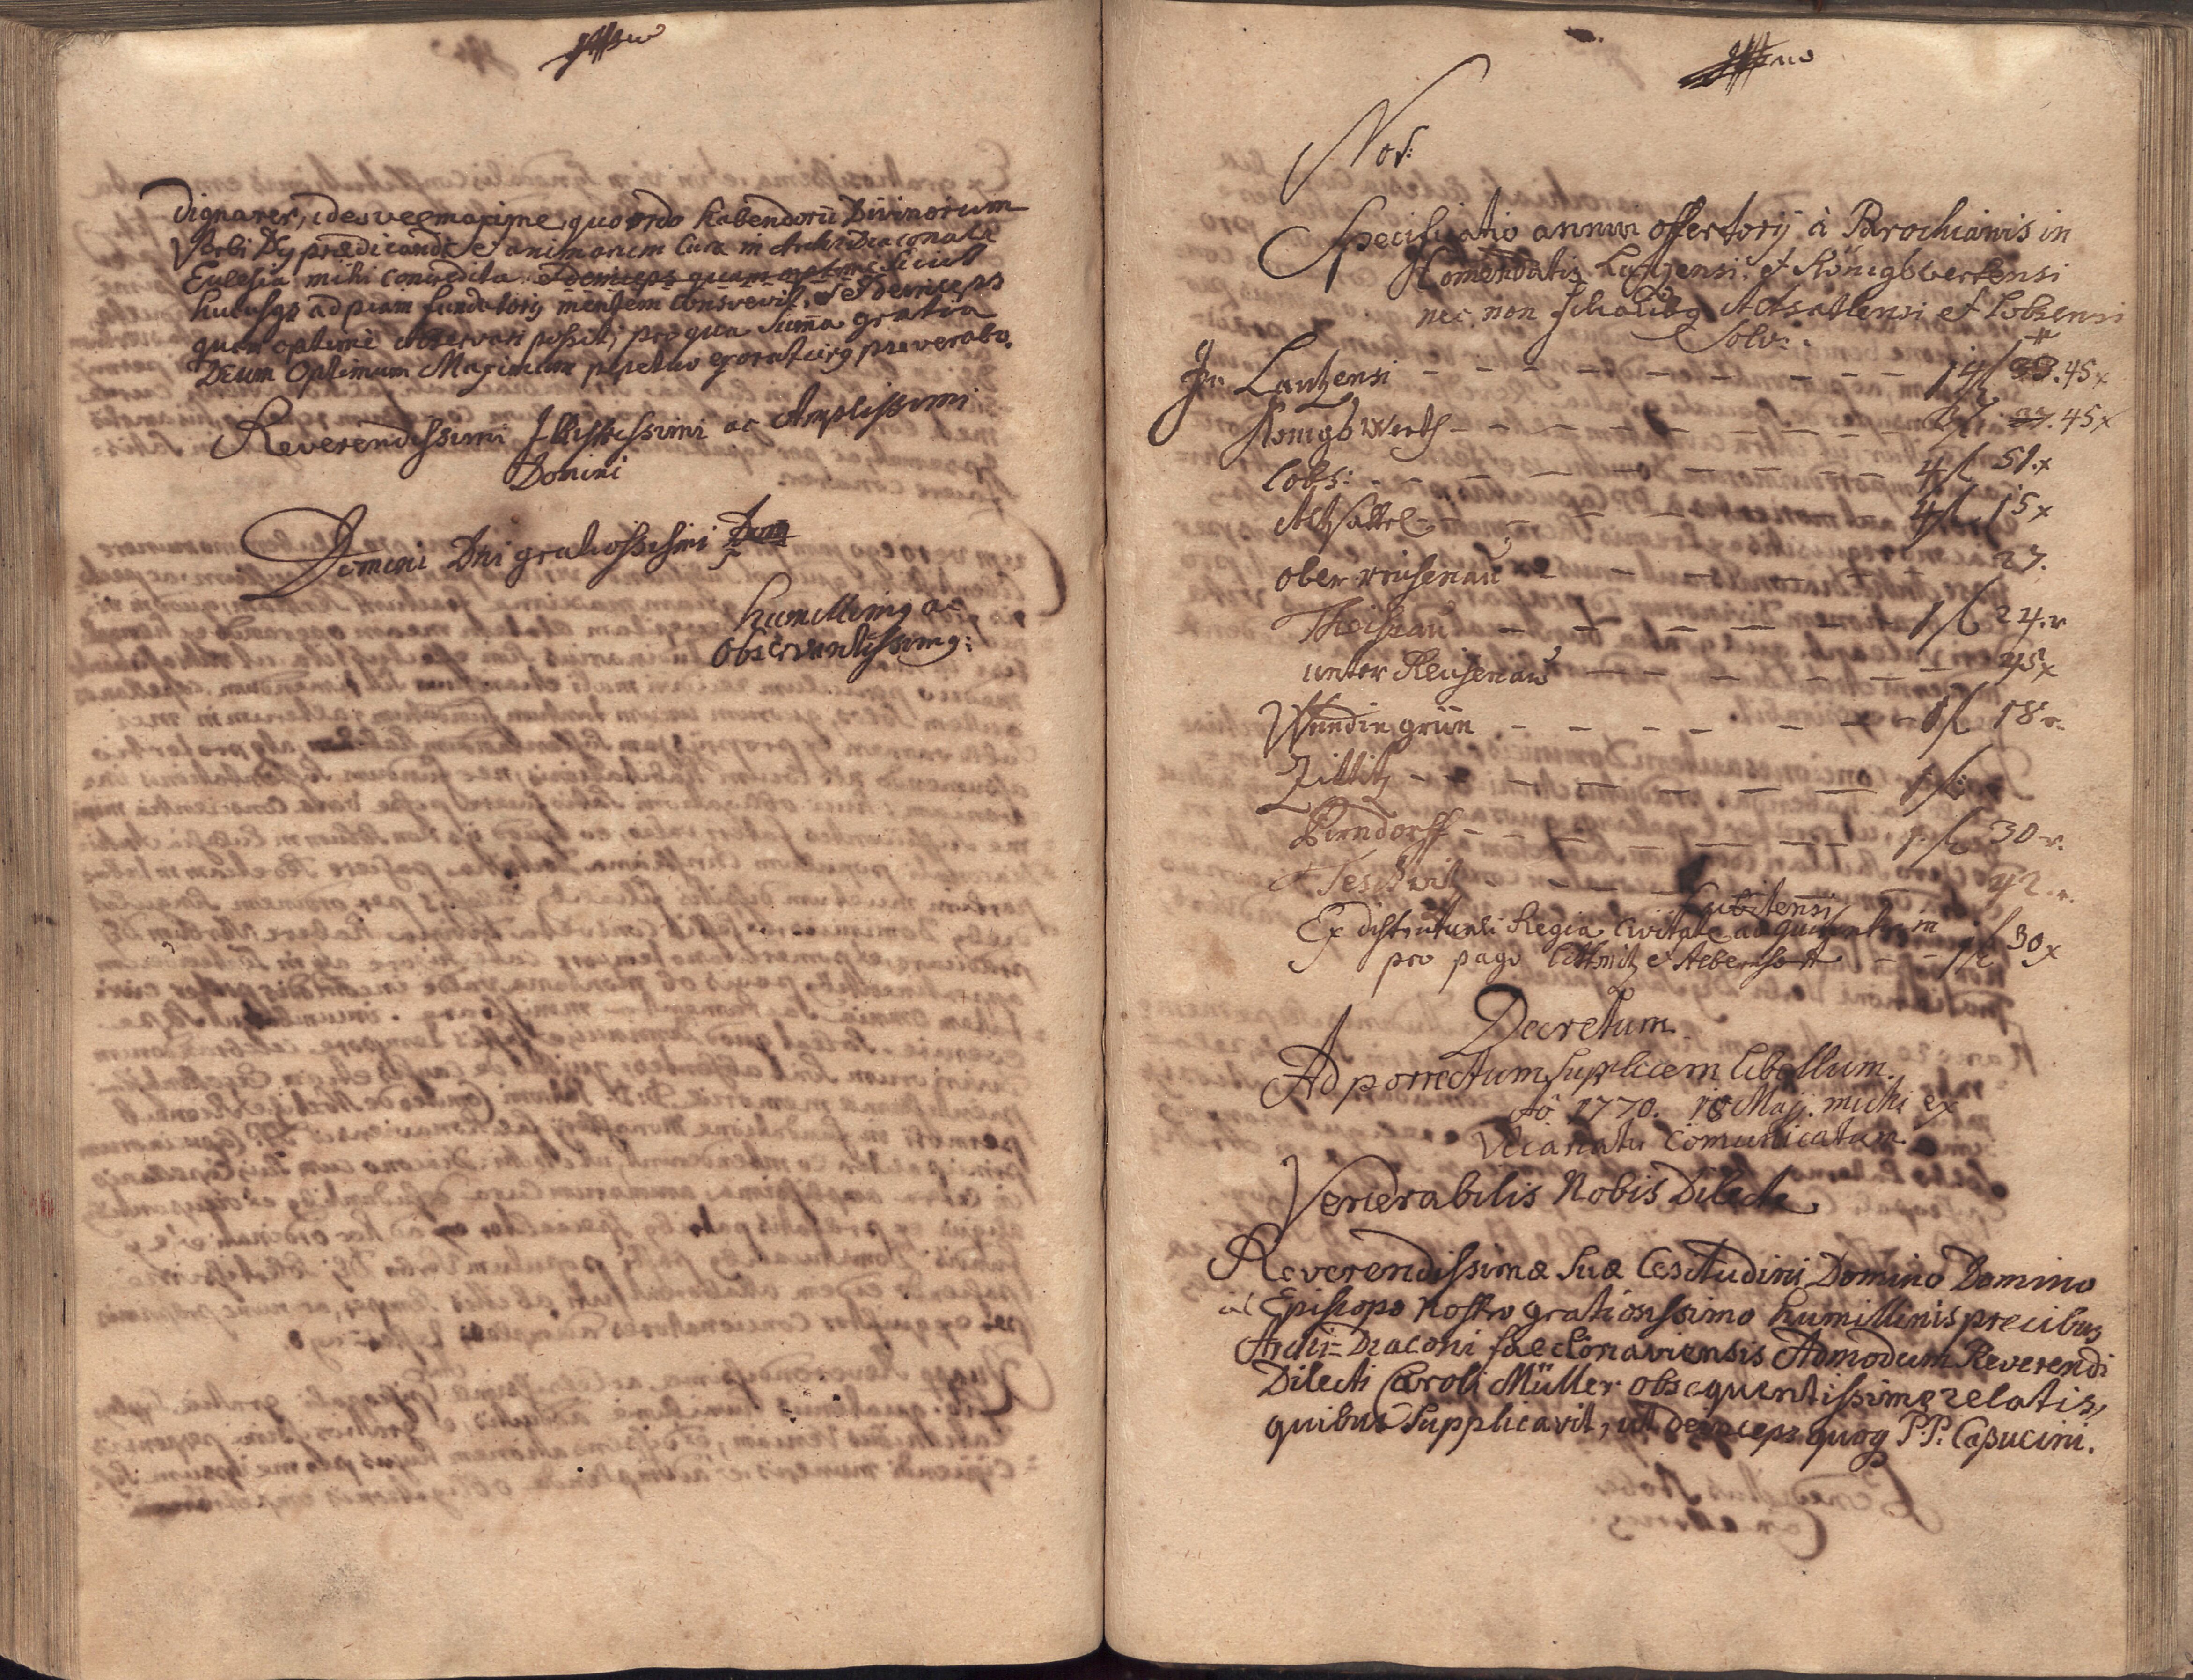 dignarer, ideo vel maxime quo ordo habendorū Divinorum
Verbi Dej prædicandi et animarum Cura in Archi Diaconali
Ecclesia mihi concredita et deinceps quam optime sicut
hucusqꝫ ad piam fundatoris mentem consvevit, et deinceps
quam optimè observari possit; pro qua Sum̄a gratia
Deum Optimum Maximum perpetuo exoraturꝫ perseverabo.
Reverendissimi Illustrissimi ac Amplissimi
Domini
Domini Dni gratiosissimi
humillimꝫ ac
observantissimꝫ:
Not:
Specificatio annui offertorij à Parochianis in
Comendatis Lantzensi, et Königswerthensi
nec non filialibꝫ Altsattlensi et Lobsensi
Solv:
In Lantzensi - - - - - - - - - 14 f 33. 45 x
Königswerth - - - - - - - - 27. 45 x
Lobs: - - - - - - - - 4 f 51. x
Altsattel - - - - - - - 4 f 15 x
ober reisenau - - - - - - 27.
Theissau - - - - - - 1 f 24. x
unter Reisenau - - - - - - 45 x
Wundin grün - - - - - - 1 f 18 x
Zittitz - - - - - - - 1 f
Pirndorff - - - - - - 1 f 30 x.
Teschwitz - - - - 42. x.
Cubitensi
Ex districtuali Regia Civitate
pro pago Littmitz et - - 1 f 30 x
Decretum
Ad porrectum supplicem libellum.
Aō 1770. 18 Maij. michi ex
Vicariatu com̄unicatum.
Venerabilis Nobis Dilecte
Reverendissimæ Suæ Celsitudini Domino Domino
ac Episcopo Nostro gratiosissimo humillimis precibus
Archi-Diaconi falcknaviensis Admodum Reverendi
Dilecti Caroli Müller obsequentissimè relatis,
quibus supplicavit, ut deinceps quoqꝫ P.P. Capucini.